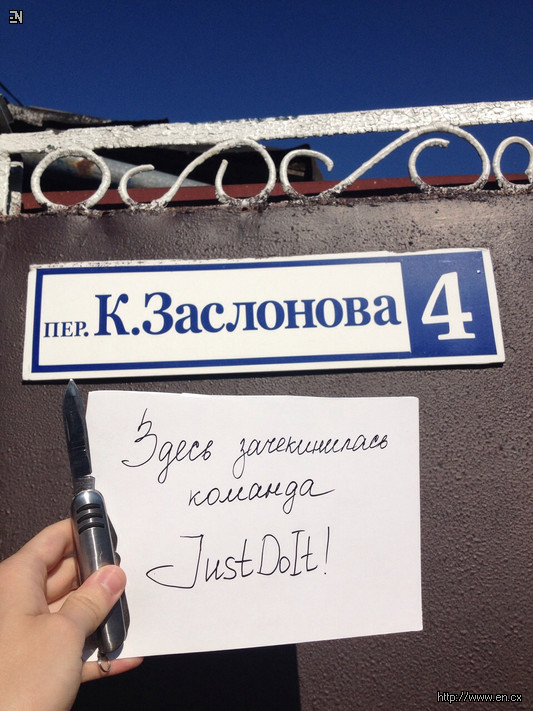 EN
пер. К.Заслонова 4
Здесь зачекинилась
команда
JustDoIt!
http://www.en.cx